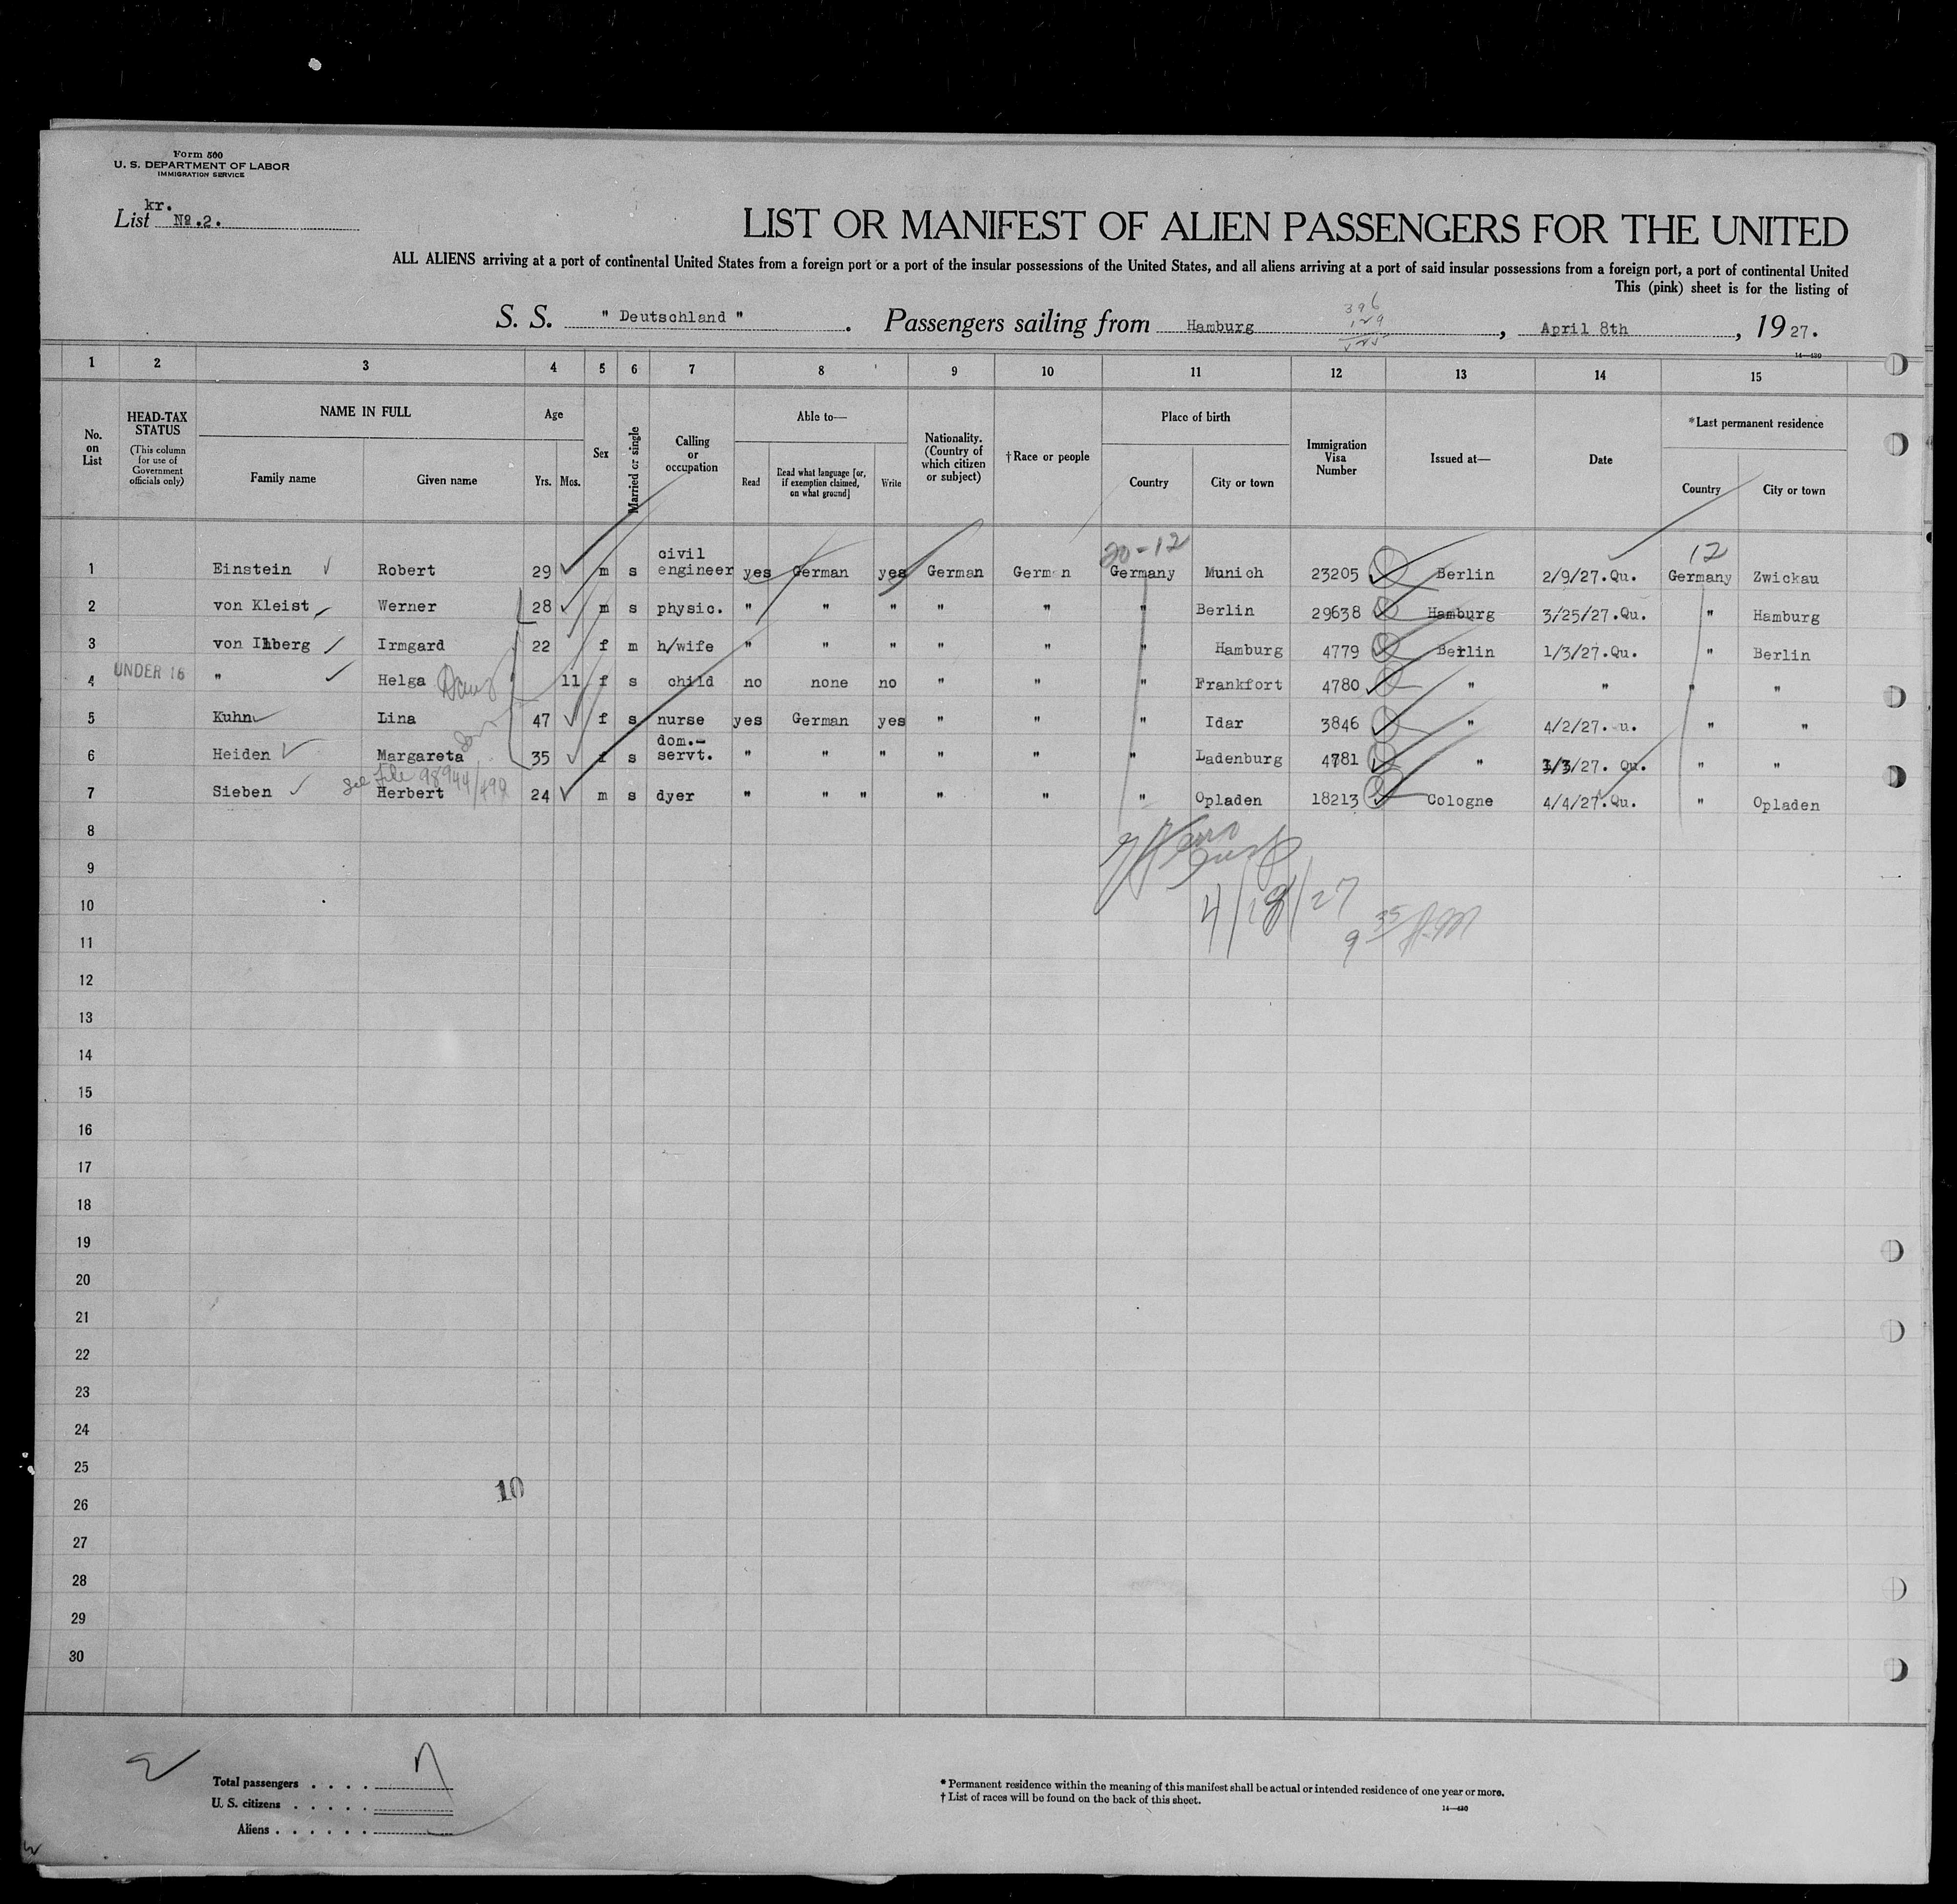 Form 500
U. S. DEPARTMENT OF LABOR
IMMIGRATION SERVICE
kr.
List No.2.
LIST OR MANIFEST OF ALIEN PASSENGERS FOR THE UNITED
ALL ALIENS arriving at a port of continental United States from a foreign port or a port of the insular possessions of the United States, and all aliens arriving at a port of said insular possessions from a foreign port, a port of continental United
This (pink) sheet is for the listing of
396
129
S. S. " Deutschland ". Passengers sailing from Hamburg, April 8th, 1927.
14—430
1 2 3 4 5 6 7 8 9 10 11 12 13 14 15
No. on List
HEAD-TAX STATUS
(This column for use of Government officials only)
NAME IN FULL
Family name Given name
Age
Yrs. Mos.
Sex
Married or single
Calling or occupation
Able to—
Read
Read what language [or, if exemption claimed, on what ground]
Write
Nationality. (Country of which citizen or subject)
†Race or people
Place of birth
Country City or town
Immigration Visa Number
Issued at—
Date
*Last permanent residence
Country City or town
20-12 12
1 Einstein Robert 29 m s civil engineer yes German yes German German Germany Munich 23205 Berlin 2/9/27.Qu. Germany Zwickau
2 von Kleist Werner 28 m s physic. " " " " " " Berlin 29638 Hamburg 3/25/27.Qu. " Hamburg
3 von Ilberg Irmgard 22 f m h/wife " " " " " " Hamburg 4779 Berlin 1/3/27.Qu. " Berlin
UNDER 16
4 " Helga 11 f s child no none no " " " Frankfort 4780 " " " "
5 Kuhn Lina 47 f s nurse yes German yes " " " Idar 3846 " 4/2/27. u. " "
6 Heiden Margareta 35 f s dom.-servt. " " " " " " Ladenburg 4781 " 3/3/27. Qu. " "
See File 98944/492
7 Sieben Herbert 24 m s dyer " " " " " " Opladen 18213 Cologne 4/4/27.Qu. " Opladen
8
9
4/18/27
10
9 35 A.M
11
12
13
14
15
16
17
18
19
20
21
22
23
24
25
10
26
27
28
29
30
Total passengers . . . .
U. S. citizens . . . . .
Aliens . . . . . .
* Permanent residence within the meaning of this manifest shall be actual or intended residence of one year or more.
† List of races will be found on the back of this sheet.
14—430